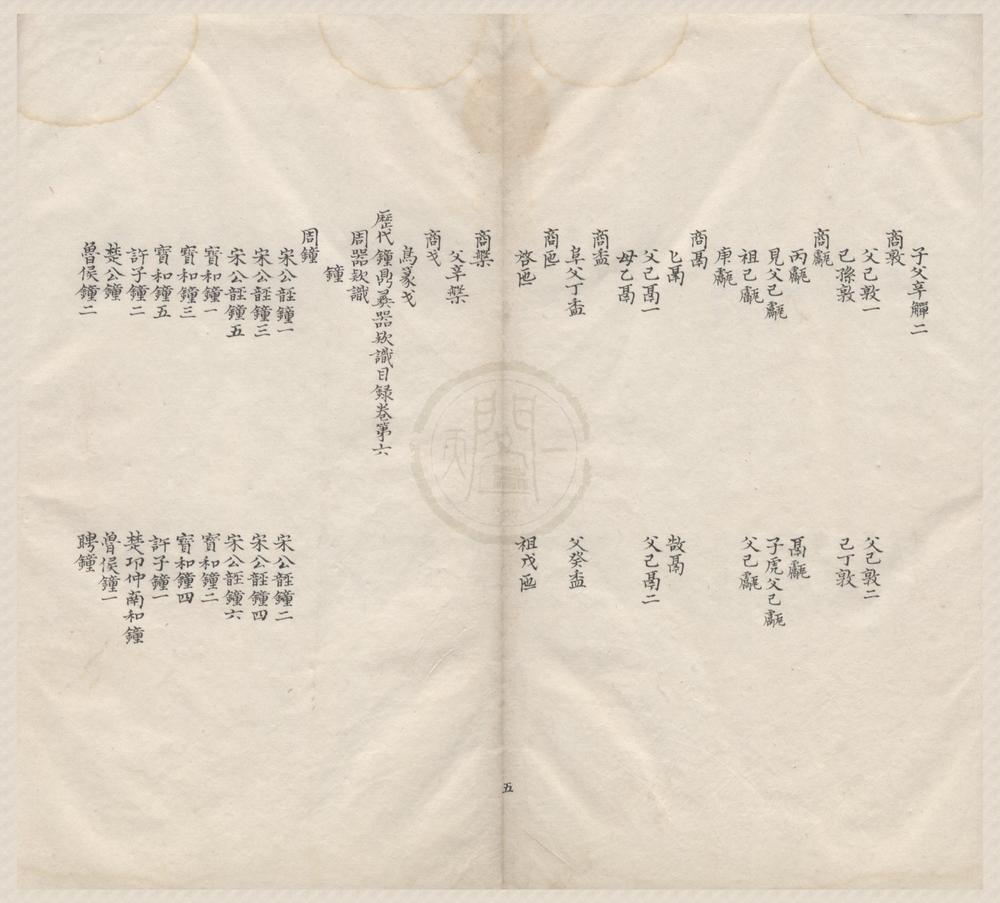 子父辛觶二
商敦
父己敦一　父己敦二
己孫敦　己丁敦
商甗
丙甗　鬲甗
見父己甗　子虎父己甗
祖己甗　父己甗
庚甗
商鬲
匕鬲　㪔鬲
父己鬲一　父己鬲二
母乙鬲
商盉
阜父丁盉　父癸盉
商匜
啓匜　祖戊匜
商槃
父辛槃
商戈
鳥篆戈
歷代鐘鼎彝器欵識目録卷第六
周器欵識
鐘
周鐘
宋公䪫鐘一　宋公䪫鐘二
宋公䪫鐘三　宋公䪫鐘四
宋公䪫鐘五　宋公䪫鐘六
寳和鐘一　寳和鐘二
寳和鐘三　寳和鐘四
寳和鐘五　許子鐘一
許子鐘二　楚卭仲南和鐘
楚公鐘　魯侯鐘一
魯侯鐘二　聘鐘
五